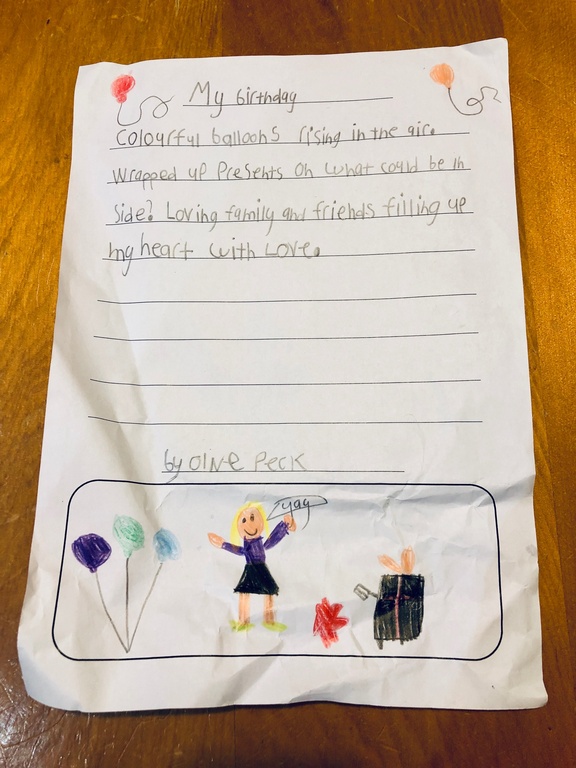 My birthday
Colourful balloons rising in the air.
Wrapped up Presents oh what could be in
side? Loving family and friends filling up
my heart with Love.
by Olive Peck
yay